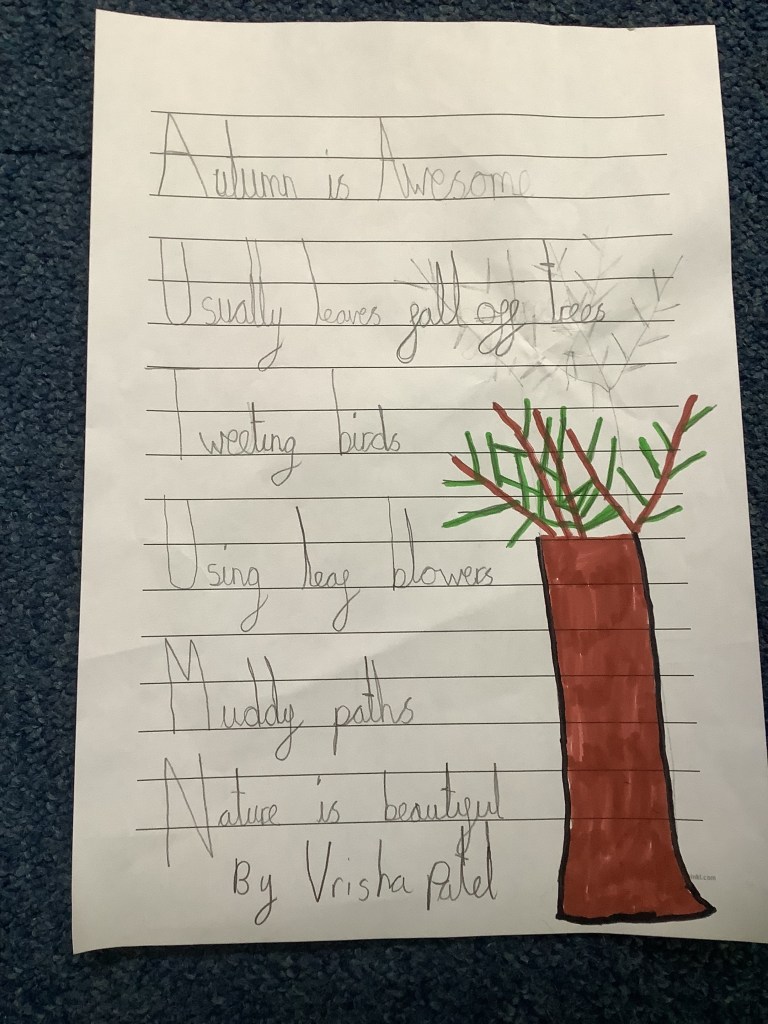 Autumn is Awesome
Usually leaves fall off trees
Tweeting birds
Using leaf blowers
Muddy paths
Nature is beautiful
By Vrisha Patel